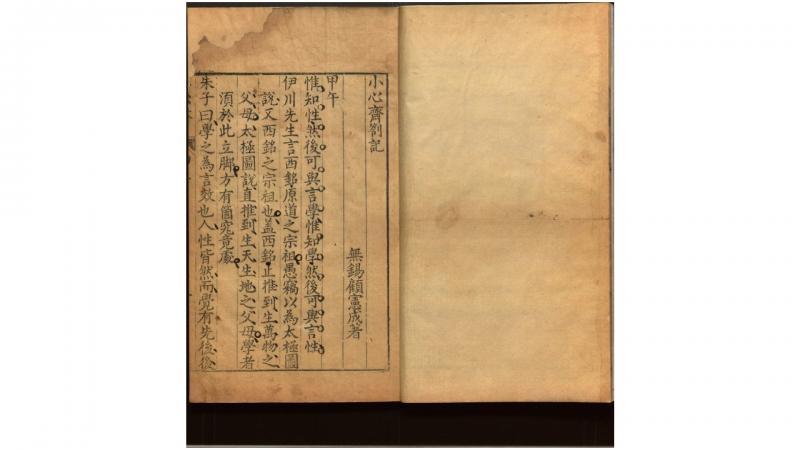 小心齋劄記
無錫顧憲成著
甲午
惟知性然後可與言學惟知學然後可與言性
伊川先生言西銘原道之宗祖愚竊以為太極圖
說又西銘之宗祖也盖西銘止推到生萬物之
父母太極圖說直推到生天生地之父母學者
須於此立脚方有箇究竟處
朱子曰學之為言效也人性皆然而覺有先後後